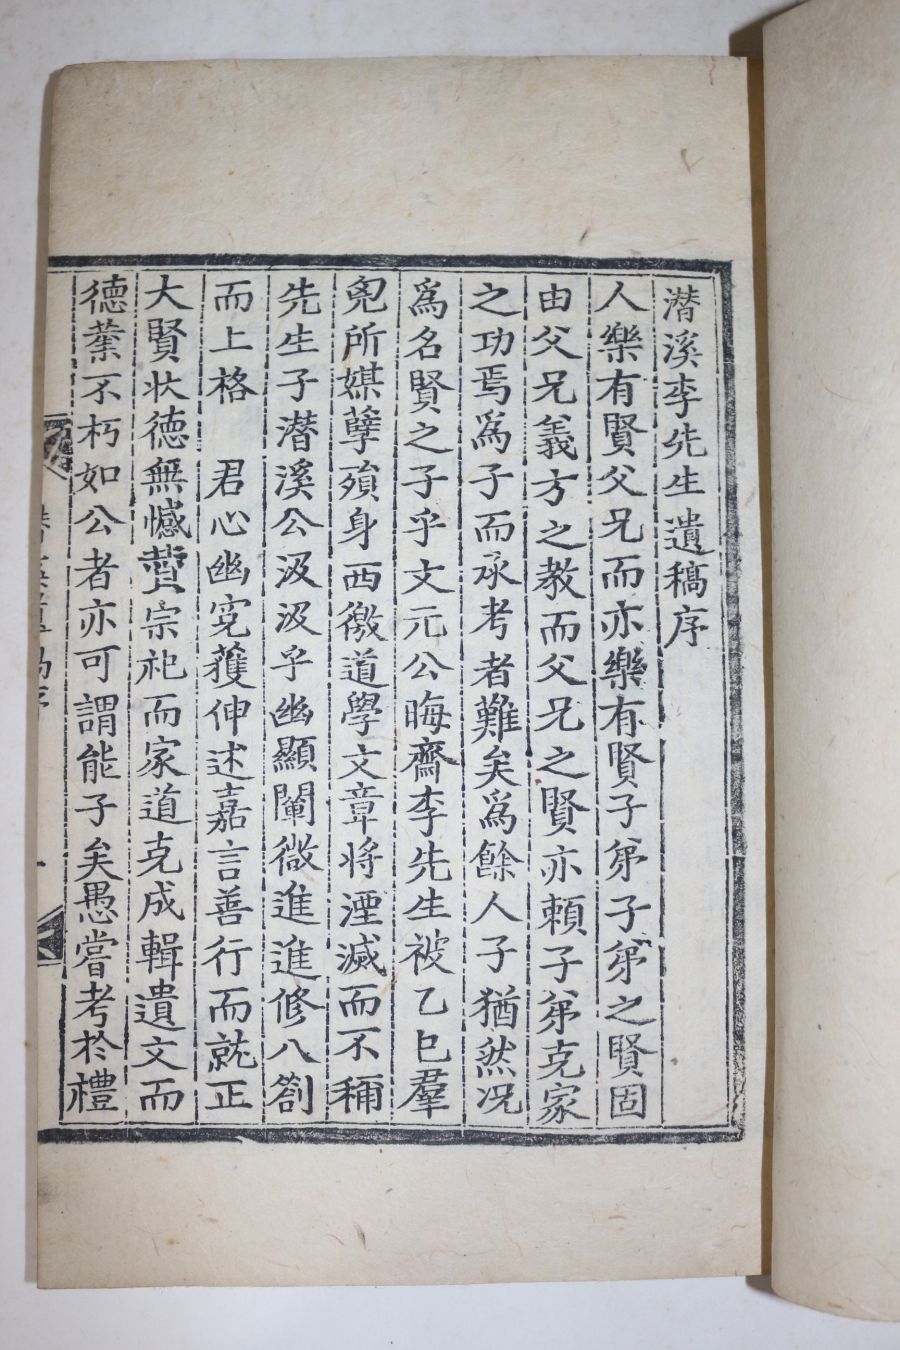 潜溪李先生遺稿序
人樂有賢父兄而亦樂有賢子弟子弟之賢固
由父兄義方之教而父兄之賢亦頼子弟克家
之功焉爲子而承考者難矣爲餘人子猶然况
爲名賢之子乎文元公晦齋李先生被乙巳羣
兇所媒孽殞身西徼道學文章将湮滅而不稱
先生子潜溪公汲汲乎幽顯闡微進進修八劄
而上格 君心幽寃獲伸述嘉言善行而就正
大賢状德無憾賛宗祀而家道克成輯遺文而
德業不朽如公者亦可謂能子矣愚嘗考於禮